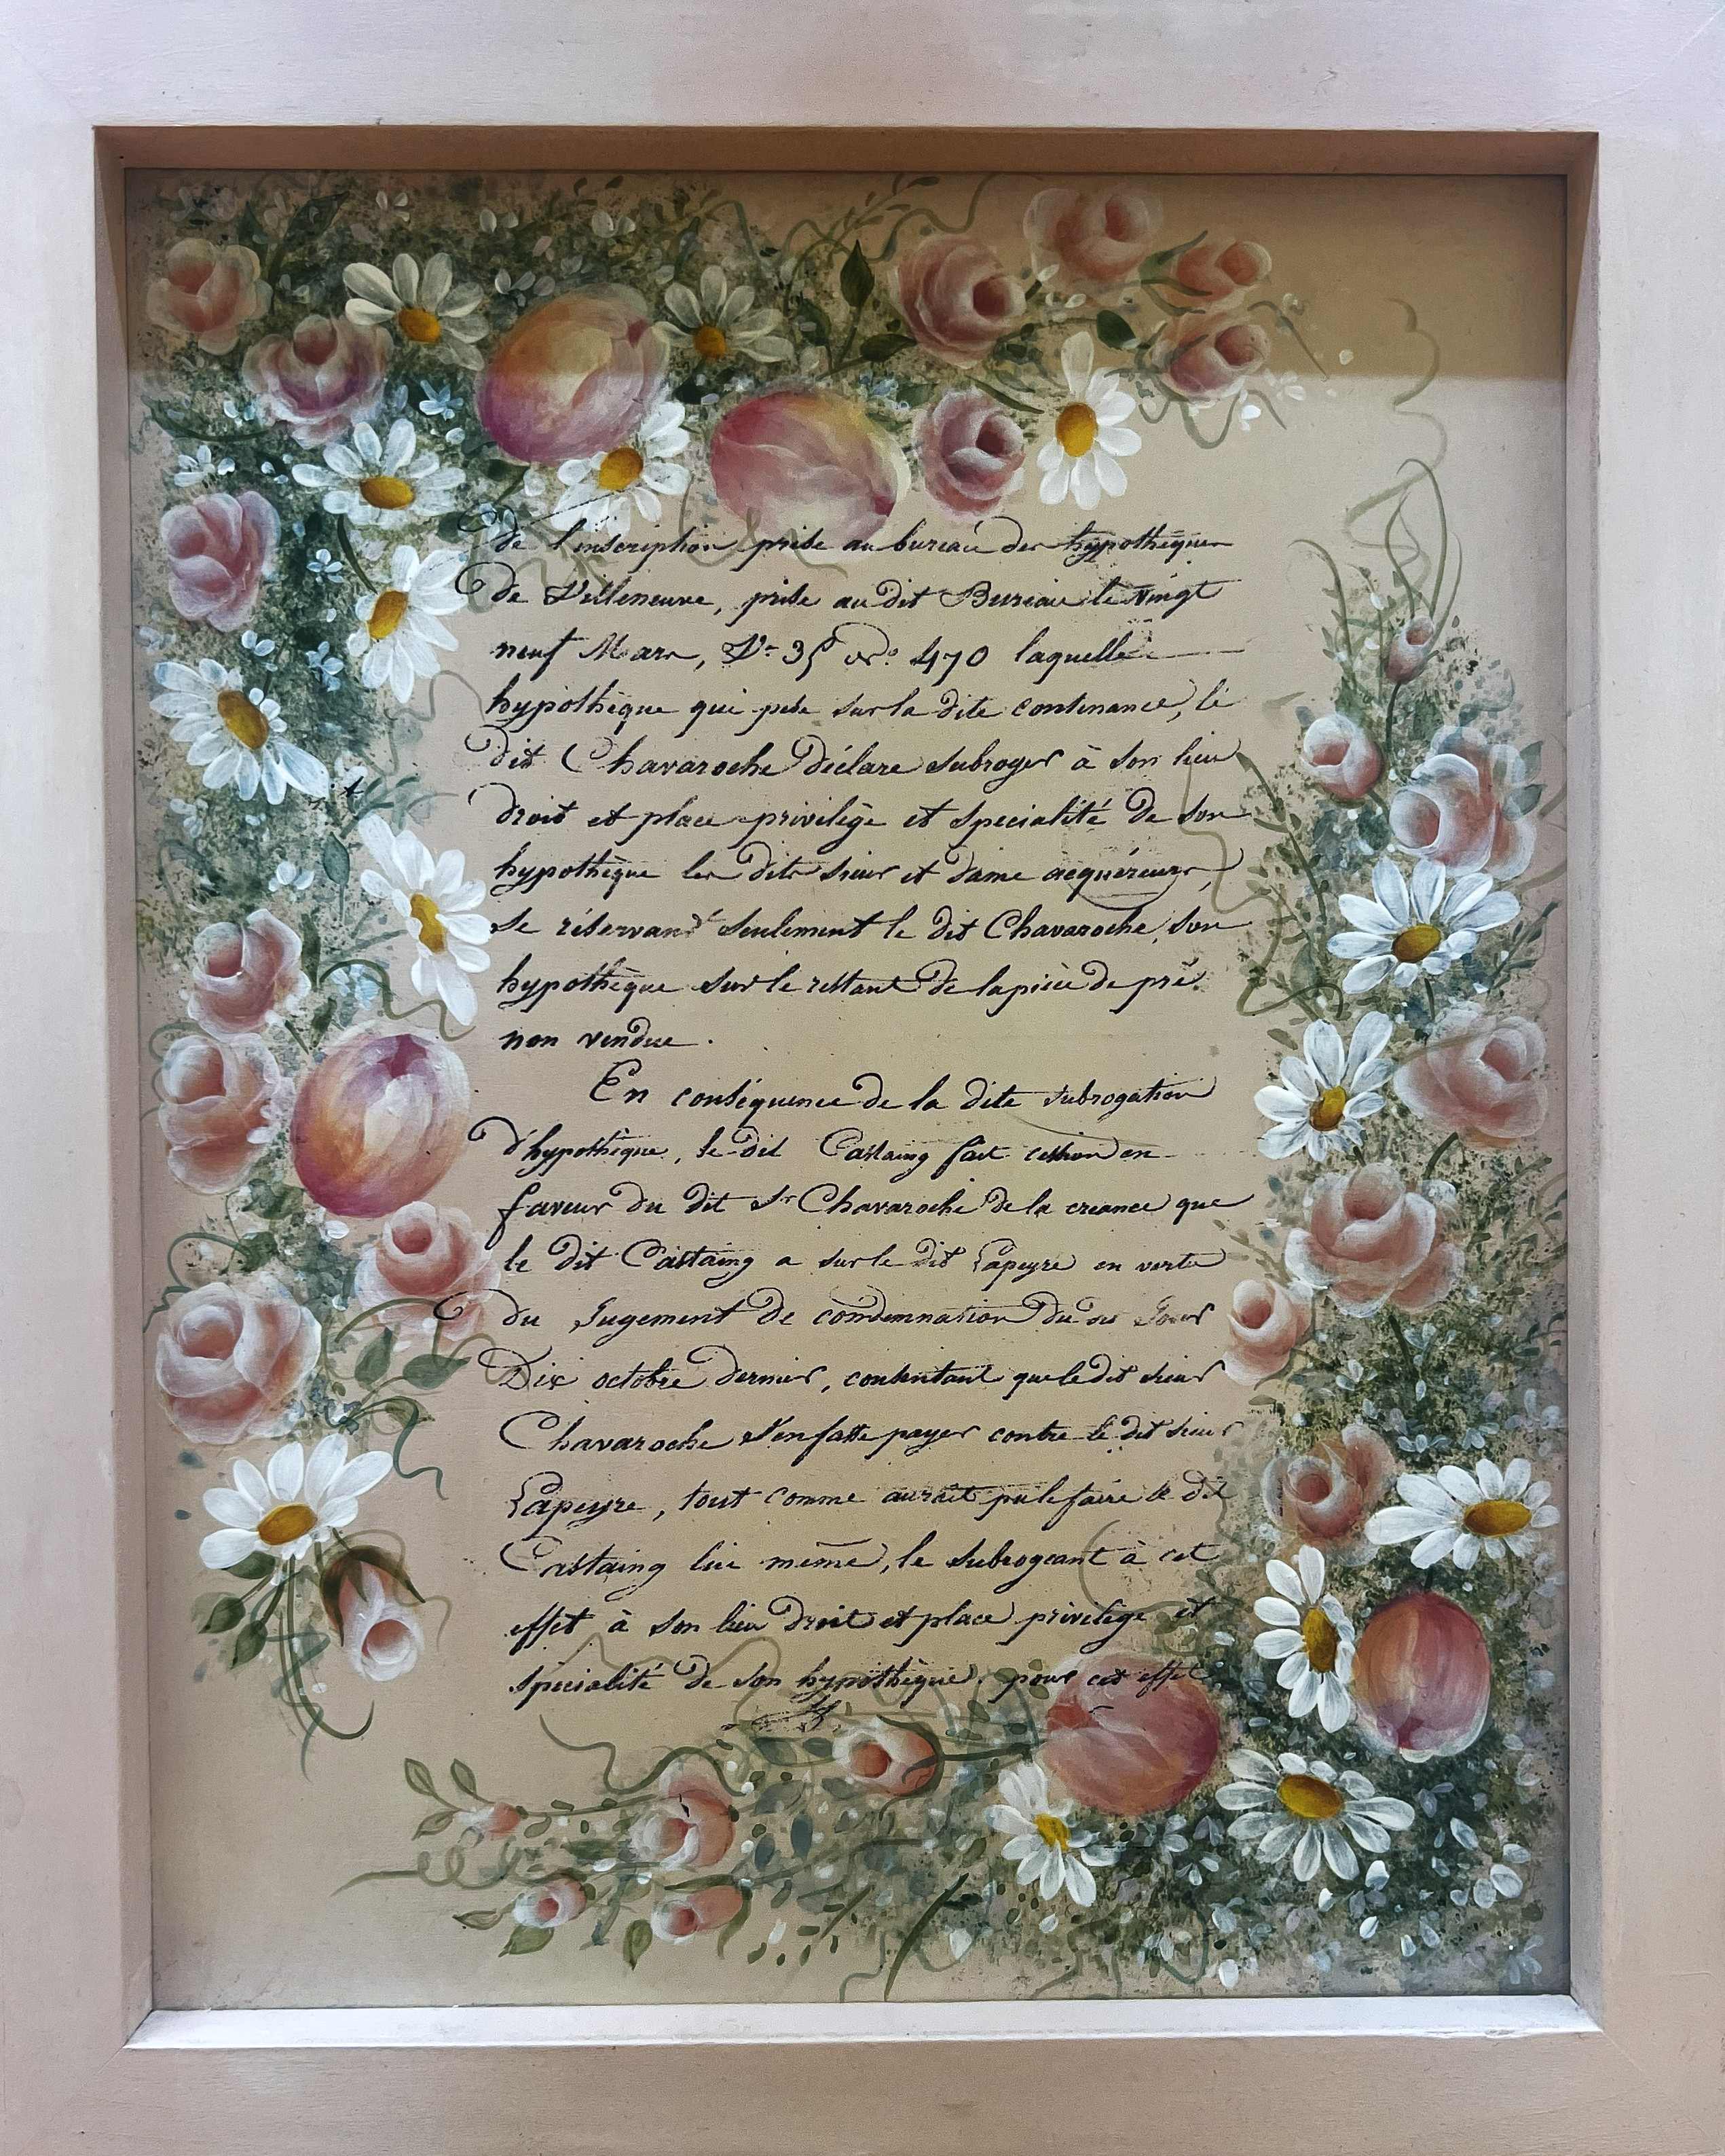 de l'inscription prise au bureau des hypothèques
de Villeneuve, prise au dit Bureau le vingt
neuf Mars, Vol 35 no. 470 laquelle
hypothèque qui pese sur la dite contenance, le
dit Chavaroche déclare subroger à son lieu
droit et place privilège et specialité de son
hypothèque les dits sieur et dame acquéreurs,
se réservant seulement le dit Chavaroche, son
hypothèque sur le restant de la pièce de pré
non vendue.
En conséquence de la dite subrogation
d'hypothèque, le dit Castaing fait cession en
faveur du dit Sr Chavaroche de la creance que
le dit Castaing a sur le dit Lapeyre en vertu
du Jugement de condemnation du
Dix octobre dernier, consentant que le dit sieur
Chavaroche s'en fasse payer contre le dit sieur
Lapeyre, tout comme aurait pu le faire le dit
Castaing lui même, le subrogeant à cet
effet à son lieu droit et place privilège et
spécialité de son hypothèque, pour cet effet